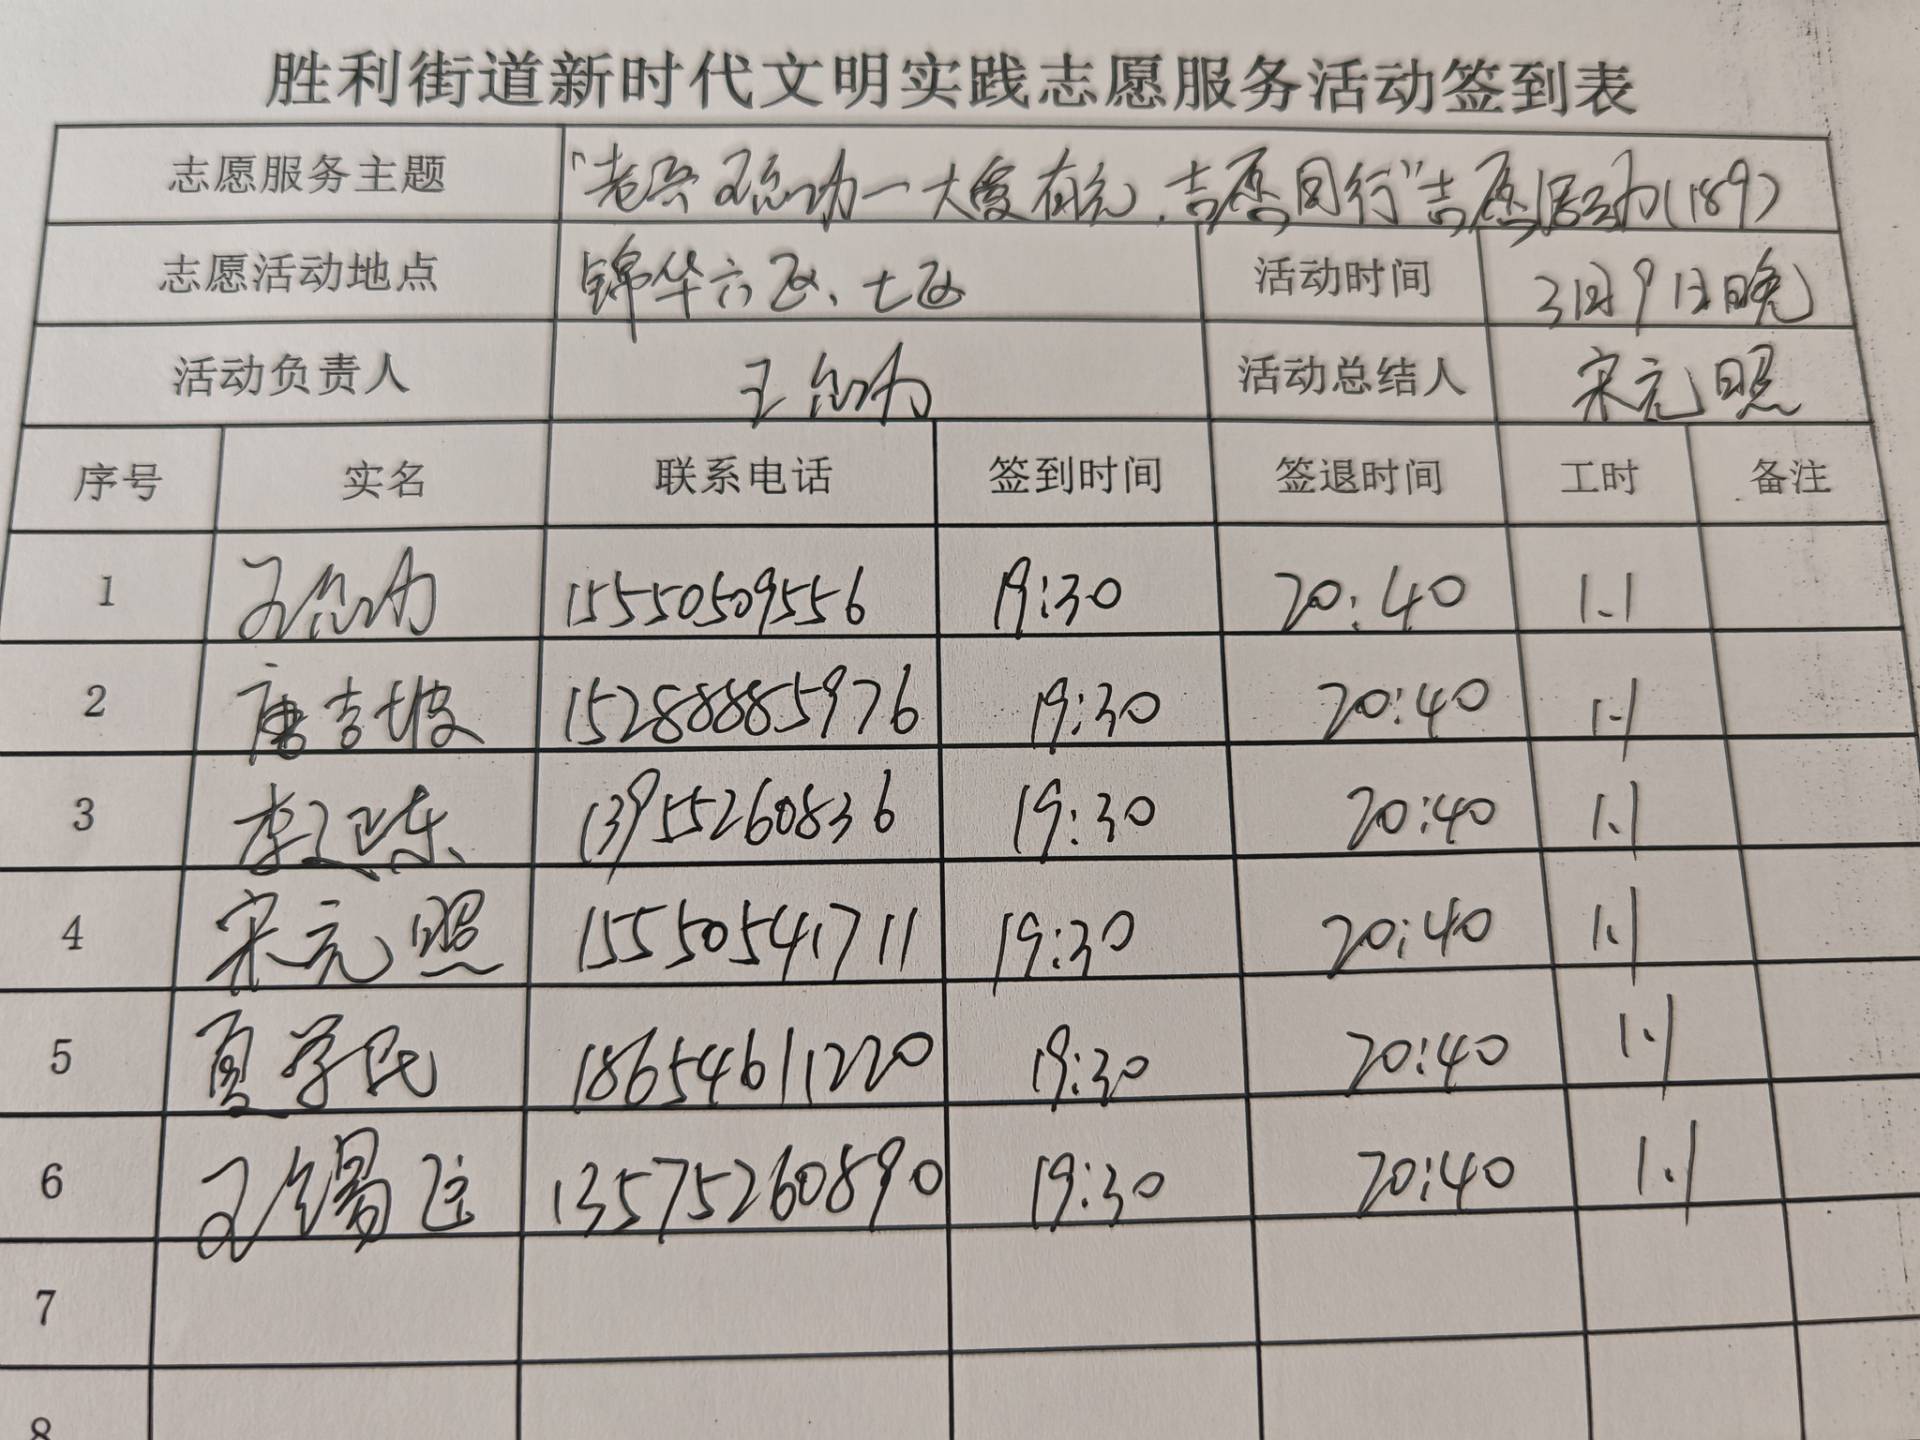 胜利街道新时代文明实践志愿服务活动签到表
志愿服务主题 “老兵王忠功一大爱有元，志愿同行”志愿活动(189)
志愿活动地点 锦华六区、七区 活动时间 3月9日晚
活动负责人 王忠功 活动总结人 宋元照
序号 实名 联系电话 签到时间 签退时间 工时 备注
1 王忠功 15550509556 19:30 20:40 1.1
2 唐吉坡 15288885976 19:30 20:40 1.1
3 李廷东 13955260836 19:30 20:40 1.1
4 宋元照 15550541711 19:30 20:40 1.1
5 夏学民 18654611220 19:30 20:40 1.1
6 王锡 13575260890 19:30 20:40 1.1
7
8